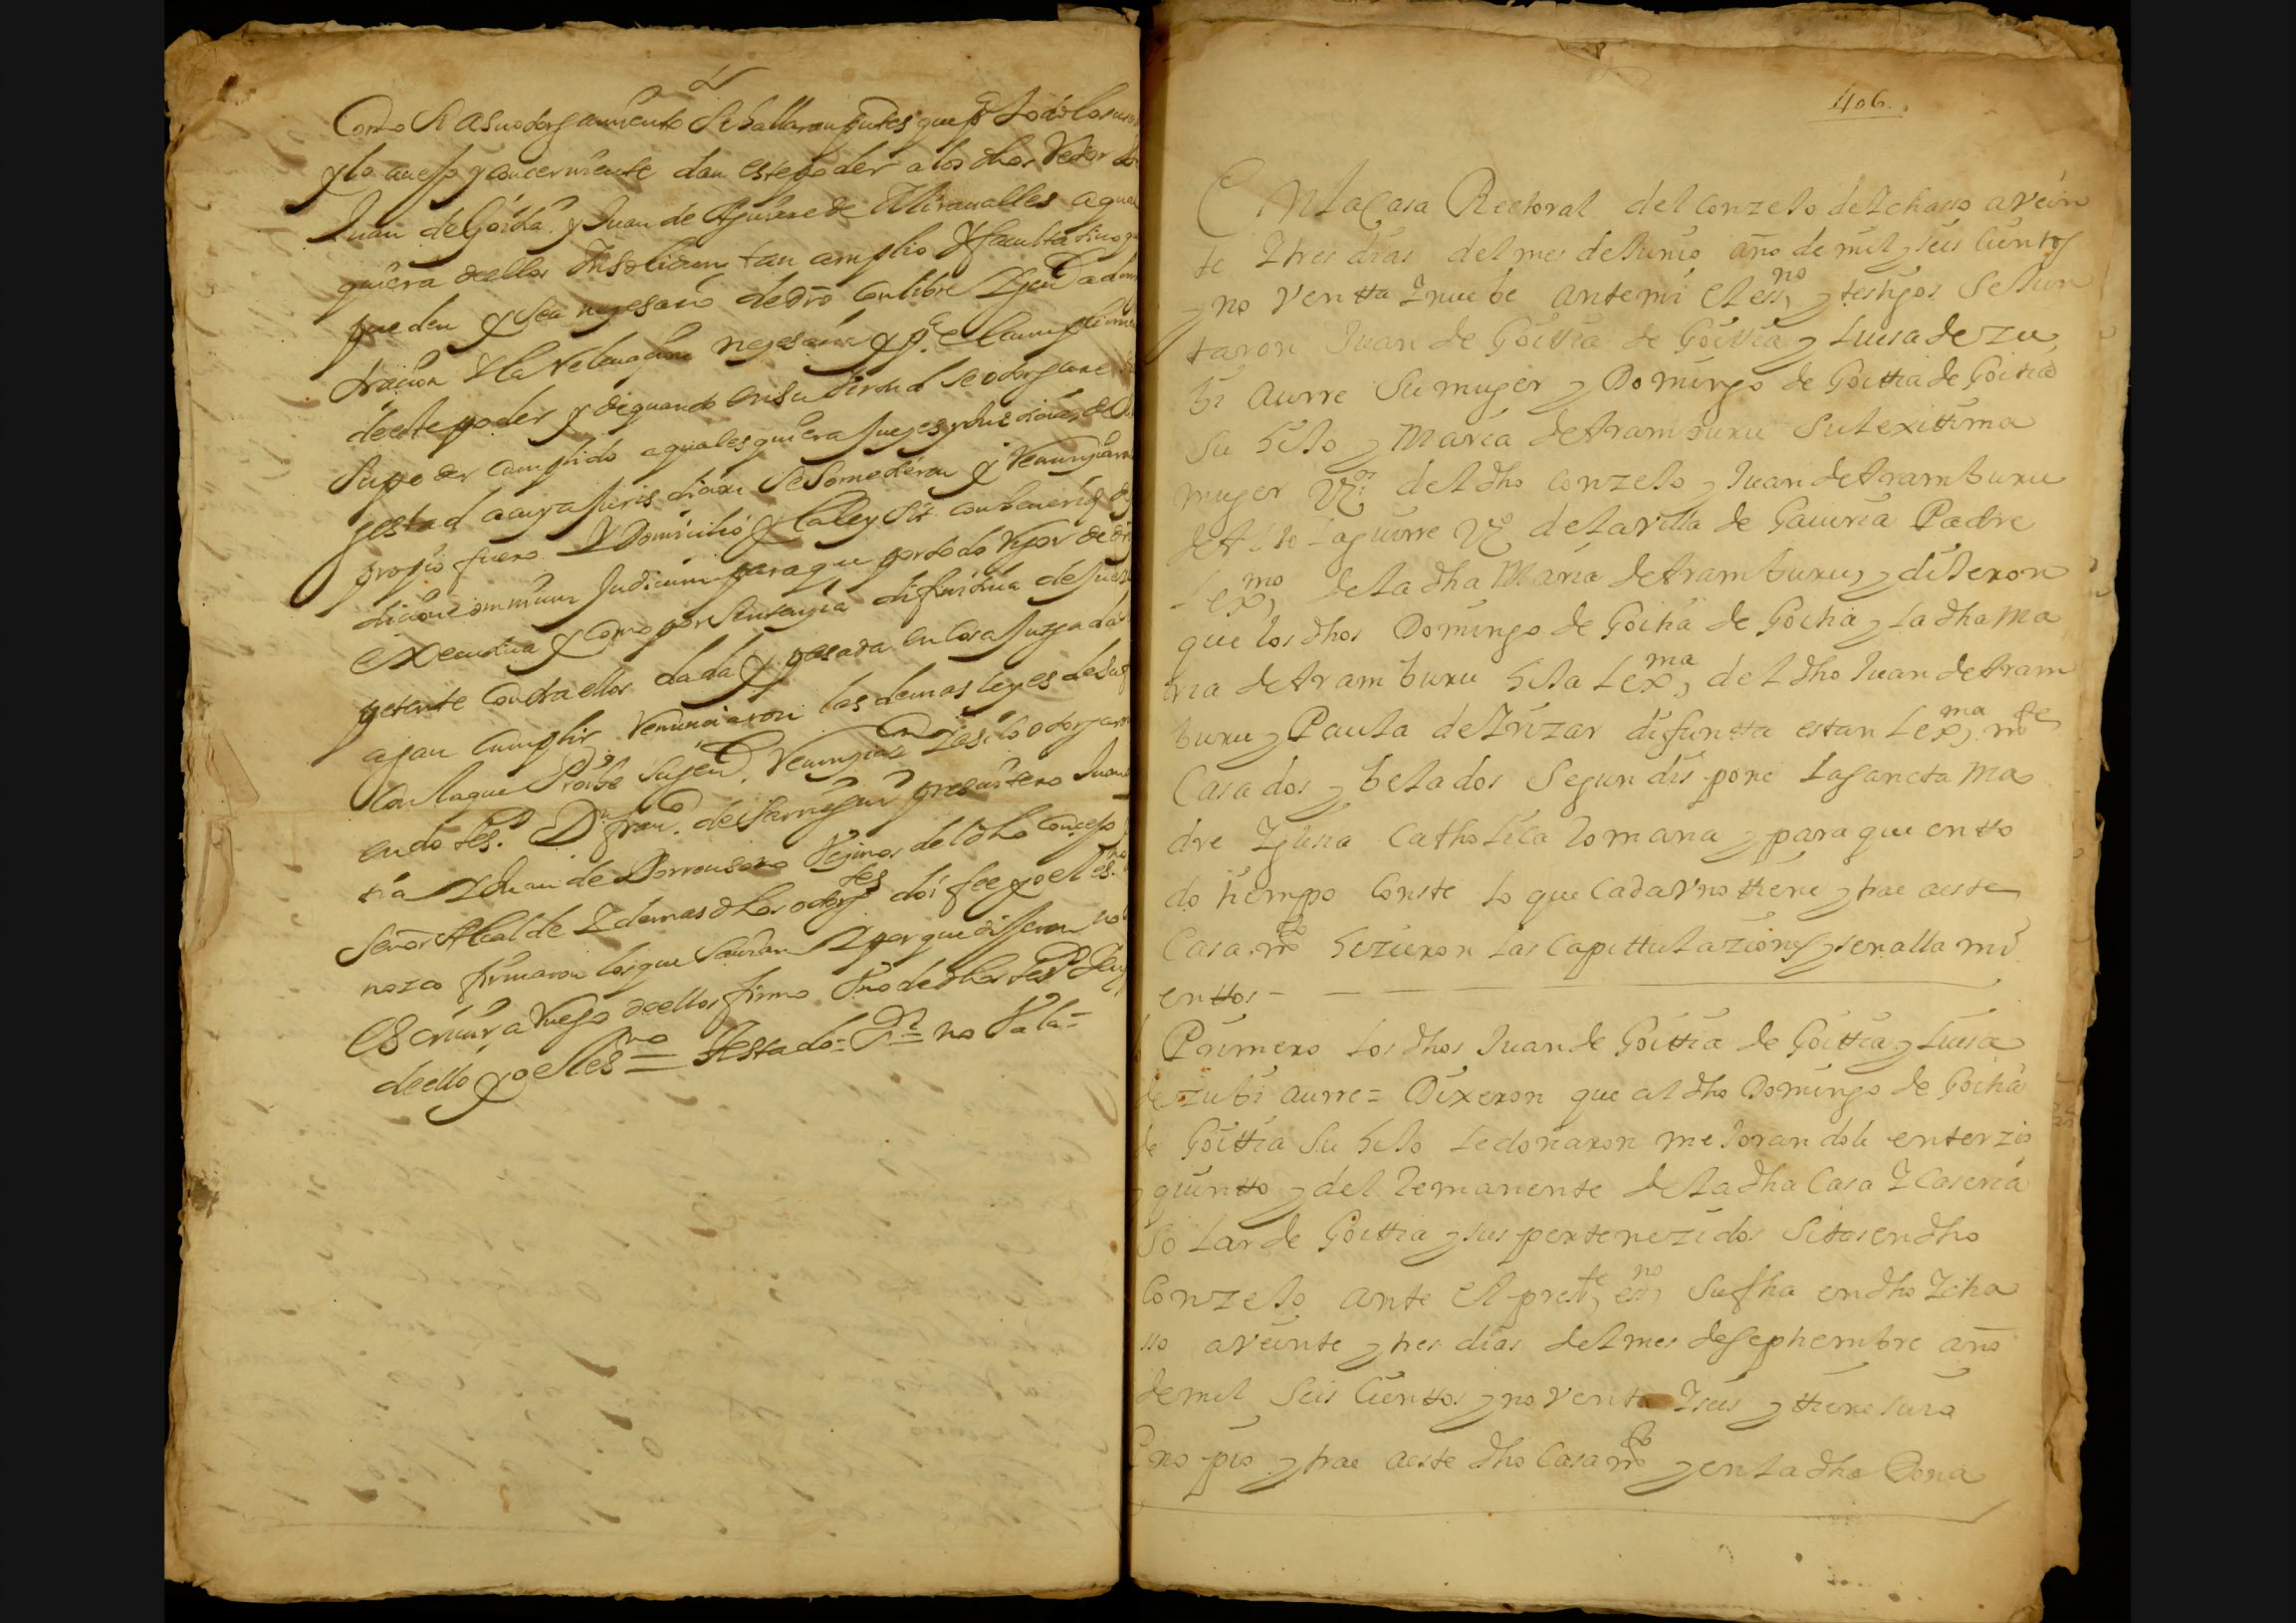 Como si a su otorgamiento se hallaran pntes que pa todo lo suso
y lo anejo y concerniente dan este poder a los dhos Retor Dn
Juan de Goitia y Juan de Aguirre de Miraualles a qual
quiera dellos Insolidun tan amplio y facultatiuo que
pueden y sea nezesario de dro con libre y jen. adminis
traçion y la Releuaçion nezesaria y pa el cumplimiento
deeste poder y de quando en su virtud se otorgare
su poder cumplido a qualesquiera juezes y Justicias de su Ma
gestad a cuya Jurisdiçion se sometieron y Renunçiaron
propio fuero y Domicilio y la ley sit conbenerit de
dicione omnium Judicum para que por todo Rigor de dro
executiua y como por sentençia difinitiua de Juez
petente contra ellos dada y pasada en cosa Juzgada
agan cumplir Renunciaron las demas leyes de su fa
con la que Proibe la jen. Renunçiaon y asi lo otorgaron
endo tes. Dn fran.co de presuitero Juan
tia y Juan de Vezinos del dho Conçejo
Señor Alcalde y demas dhos otorgtes doi fee yo el es.no
nozco firmaron los que sauian y por que dijeron no
escriuir a Ruego dellos firmo Vno de dhos tes.
dello yo el es.no = Testado = no Vala =
406.
En la Casa Rectoral del Conzejo de Ichasso a vein
te y tres dias del mes de Junio año de mil y seis cientos
y noventta y nuebe ante mi el ess.no y testigos se Jun
taron Juan de Goittia de Goittia y Luisa de zu
bi aurre su muger y Domingo de Goittia de Goitia
su hijo y Maria de Aramburu su lexittima
muger Vos del dho Conzejo y Juan de Aramburu
de Laguirre Vo de la Villa de Gauiria Padre
lexmo de la dha Maria de Aramburu y dijeron
que los dhos Domingo de Goitia de Goitia y la dha Ma
ria de Aramburu hija lexma del dho Juan de Aram
buru y Paula de Irizar difuntta estan lexmamte
Casados y belados segun dispone la sancta Ma
dre Iglesia Catholica Romana y para que en tto
do tiempo conste lo que cada vno tiene y trae a este
Casamto hezieron las Capittulaziones y señallami
enttos -
Primero los dhos Juan de Goittia de Goittia y Luisa
de zubi aurre = Dixeron que al dho Domingo de Goitia
de Goittia su hijo le donaron mejorandole en terzio
y quintto y del Remanente de la dha Casa y Caseria
solar de Goittia y sus pertenezidos sitos en dho
Conzejo ante el preste esno su fha en dho Icha
sso a veinte y tres dias del mes de septiembre año
de mil seis cienttos y noventa y seis y ttiene
Propio y trae a este dho Casamto y en la dha Dona